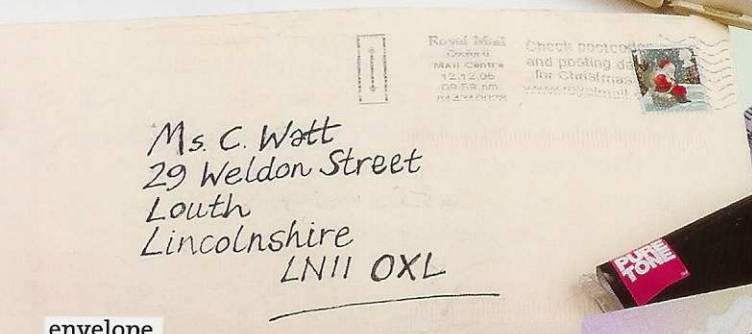 Royal Mail
Oxford
Mail Centre
12.12.06
Check postcodes
and posting da
for Christmas
Ms. C. Watt
29 Weldon Street
Louth
Lincolnshire
LN11 OXL
PURE
TONE
envelope